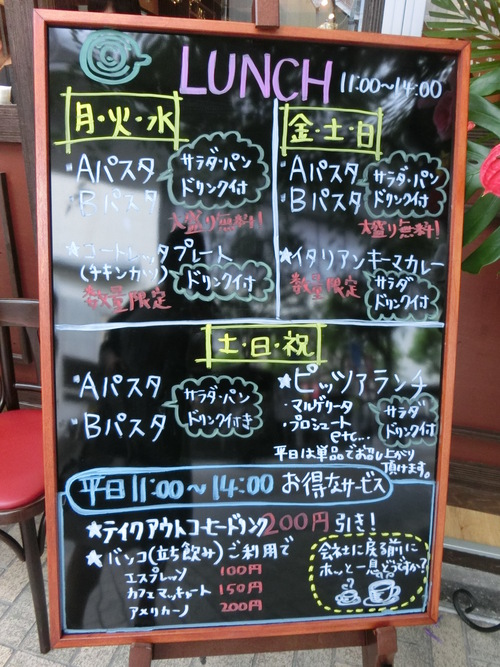 LUNCH 11:00~14:00
月・火・水
Aパスタ
Bパスタ
サラダ・パン
ドリンク付
大盛り無料!
★コートレッタプレート
(チキンカツ)
ドリンク付
数量限定
金・土・日
Aパスタ
Bパスタ
サラダ・パン
ドリンク付
大盛り無料!
★イタリアンキーマカレー
数量限定
サラダ
ドリンク付
土・日・祝
Aパスタ
Bパスタ
サラダ・パン
ドリンク付き
★ピッツァランチ
・マルゲリータ
・プロシュート
etc...
サラダ
ドリンク付
平日は単品でお召し上がり
頂けます。
平日11:00~14:00 お得なサービス
★テイクアウトコーヒードリンク200円引き!
★バンコ(立ち飲み)ご利用で
エスプレッソ 100円
カフェマッキャート 150円
アメリカーノ 200円
会社に戻る前に
ホッと一息どうですか?